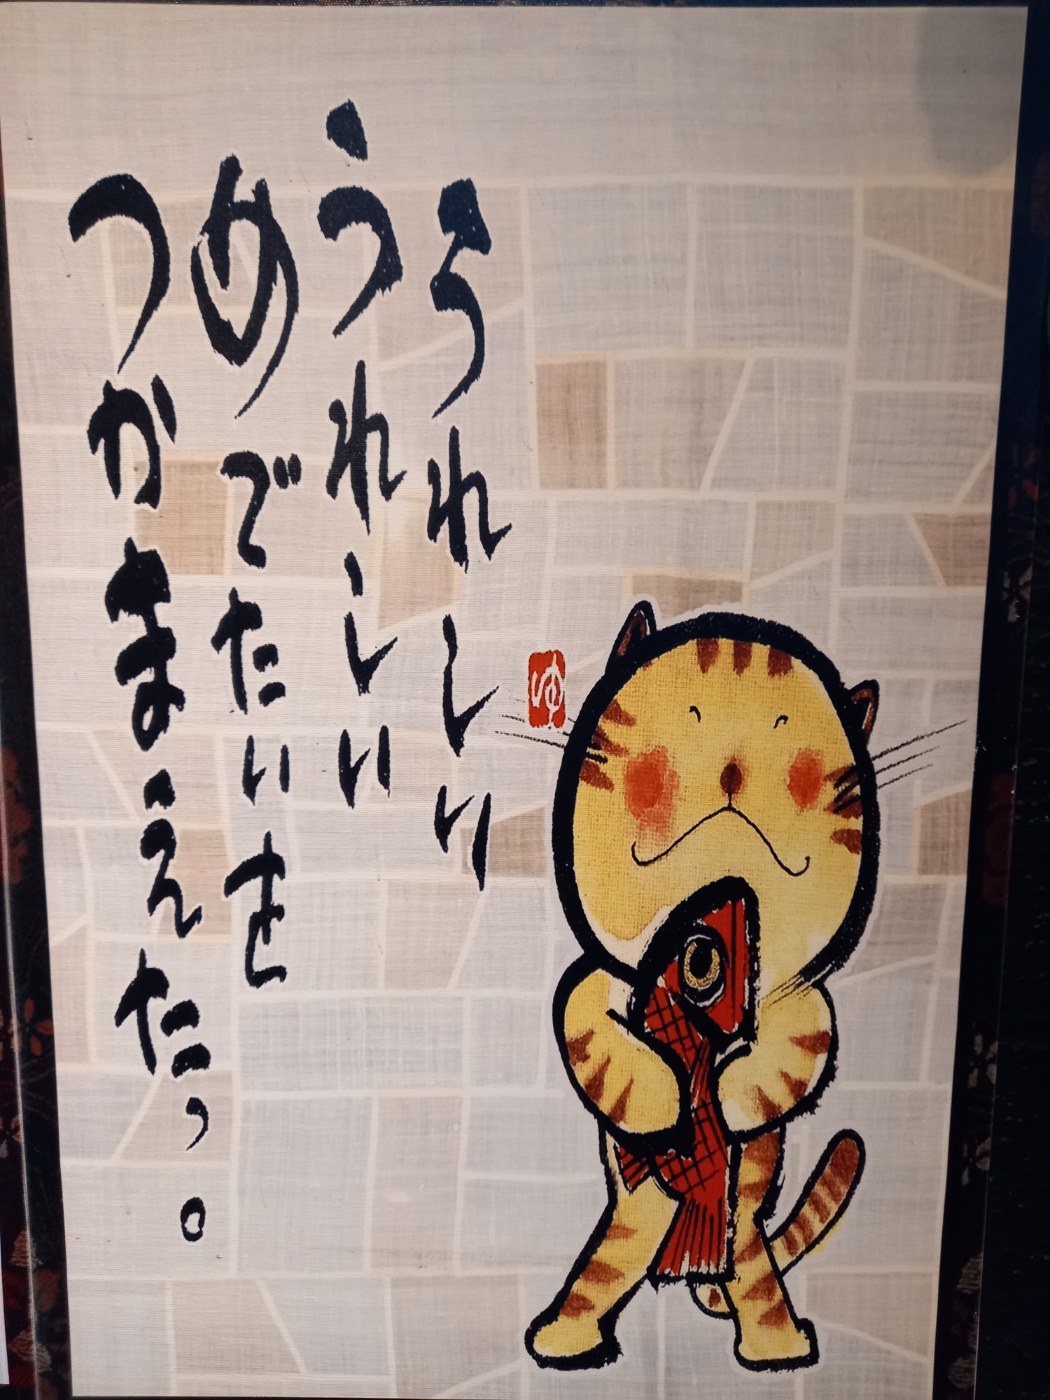 うれしい
うれしい
めでたいを
つかまえたっ。
ゆ